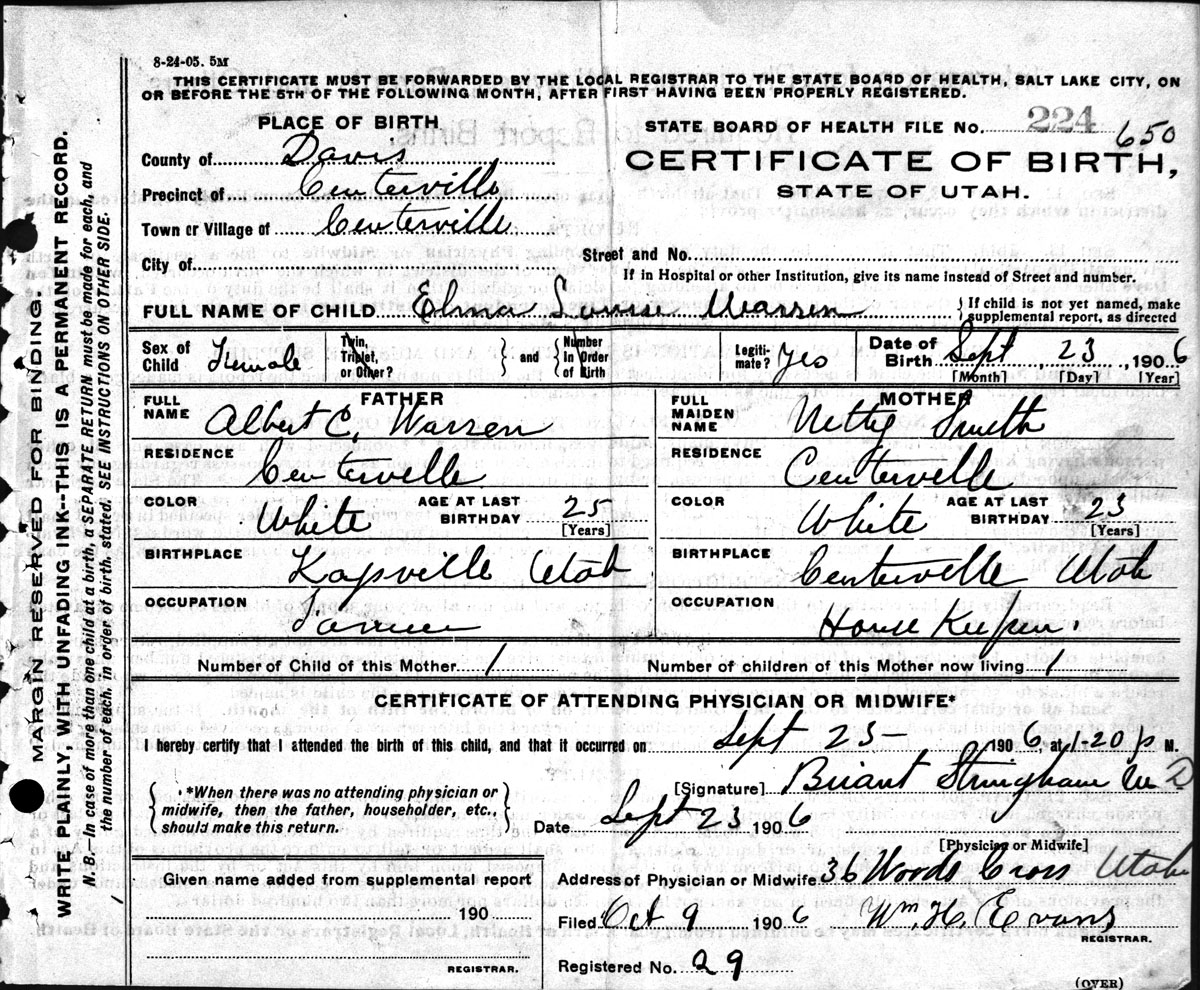 8-24-05. 5M
THIS CERTIFICATE MUST BE FORWARDED BY THE LOCAL REGISTRAR TO THE STATE BOARD OF HEALTH, SALT LAKE CITY, ON
OR BEFORE THE 5TH OF THE FOLLOWING MONTH, AFTER FIRST HAVING BEEN PROPERLY REGISTERED.
PLACE OF BIRTH
STATE BOARD OF HEALTH FILE NO. 224 650
County of Davis
CERTIFICATE OF BIRTH,
Precinct of Centerville
STATE OF UTAH.
Town or Village of Centerville
Street and No.
City of
If in Hospital or other Institution, give its name instead of Street and number.
FULL NAME OF CHILD Elma Louise Warren } If child is not yet named, make supplemental report, as directed
Sex of Child Female Twin, Triplet, or Other? } and { Number in Order of Birth Legiti-mate? Yes Date of Birth Sept 23, 1906
[Month] [Day] [Year]
FATHER
MOTHER
FULL NAME Albert C, Warren
FULL MAIDEN NAME Netty Smith
RESIDENCE Centerville
RESIDENCE Centerville
COLOR White AGE AT LAST BIRTHDAY 25 [Years]
COLOR White AGE AT LAST BIRTHDAY 23 [Years]
BIRTHPLACE Kaysville Utah
BIRTHPLACE Centerville Utah
OCCUPATION Farmer
OCCUPATION House Keeper.
Number of Child of this Mother 1
Number of children of this Mother now living 1
CERTIFICATE OF ATTENDING PHYSICIAN OR MIDWIFE*
I hereby certify that I attended the birth of this child, and that it occurred on Sept 23- 1906, at 1-20 p M.
{ *When there was no attending physician or midwife, then the father, householder, etc., should make this return. }
[Signature] Briant Stringham M D
Date Sept 23 1906
[Physician or Midwife]
Given name added from supplemental report
190
REGISTRAR.
Address of Physician or Midwife 36 Woods Cross Utah
Filed Oct 9 1906 Wm. H. Evans
REGISTRAR.
Registered No. 29
(OVER)
MARGIN RESERVED FOR BINDING.
WRITE PLAINLY, WITH UNFADING INK--THIS IS A PERMANENT RECORD.
N. B.—In case of more than one child at a birth, a SEPARATE RETURN must be made for each, and
the number of each, in order of birth, stated. SEE INSTRUCTIONS ON OTHER SIDE.